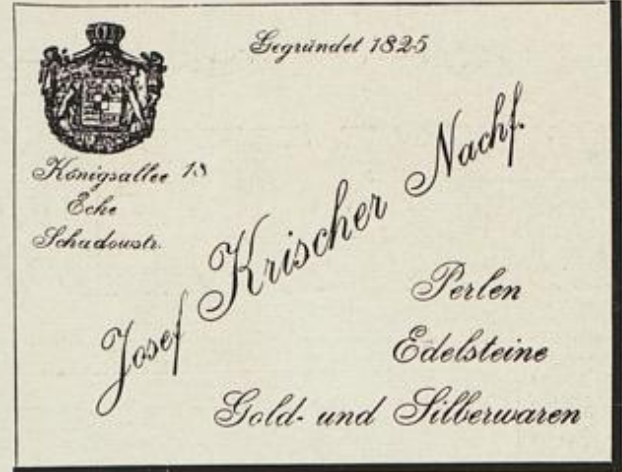 Gegründet 1825
Königsallee
Ecke
Schadowstr.
Josef Krischer Nachf.
Perlen
Edelsteine
Gold- und Silberwaren